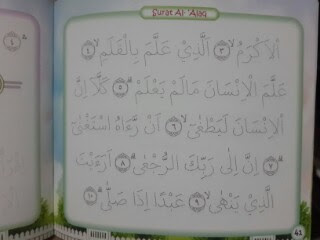 Surat Al 'Alaq
الْاَكْرَمُۙ ﴿٣﴾ الَّذِيْ عَلَّمَ بِالْقَلَمِۙ ﴿٤﴾
عَلَّمَ الْاِنْسَانَ مَالَمْ يَعْلَمْۗ ﴿٥﴾ كَلَّآ اِنَّ
الْاِنْسَانَ لَيَطْغٰىٓۙ ﴿٦﴾ اَنْ رَّاٰهُ اسْتَغْنٰىۗ
﴿٧﴾ اِنَّ اِلٰى رَبِّكَ الرُّجْعٰىۗ ﴿٨﴾ اَرَءَيْتَ
الَّذِيْ يَنْهٰىۙ ﴿٩﴾ عَبْدًا اِذَا صَلّٰىۗ ﴿١٠﴾
41